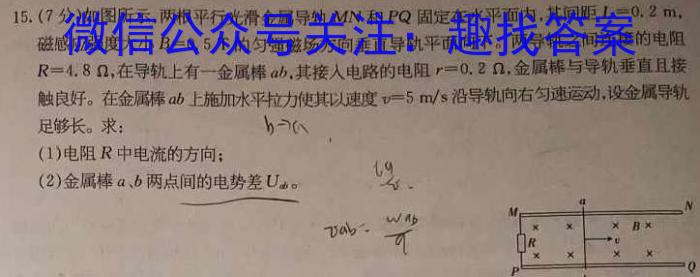 15.(7分)如图所示,两根平行光滑金属导轨MN和PQ固定在水平面内,其间距L=0.2 m,
磁感应强度 B= 5 的匀强磁场方向垂直导轨平面 两导轨之间连接的电阻
微信公众号关注：趣找答案
R=4.8 Ω,在导轨上有一金属棒ab,其接入电路的电阻r=0.2 Ω,金属棒与导轨垂直且接
触良好。在金属棒ab上施加水平拉力使其以速度v=5 m/s沿导轨向右匀速运动,设金属导轨
足够长。求:
b→a
(1)电阻R中电流的方向;
(2)金属棒a、b两点间的电势差Uab。
Uab= Wab/q
M a N
× × B ×
R v
× × × ×
P Q